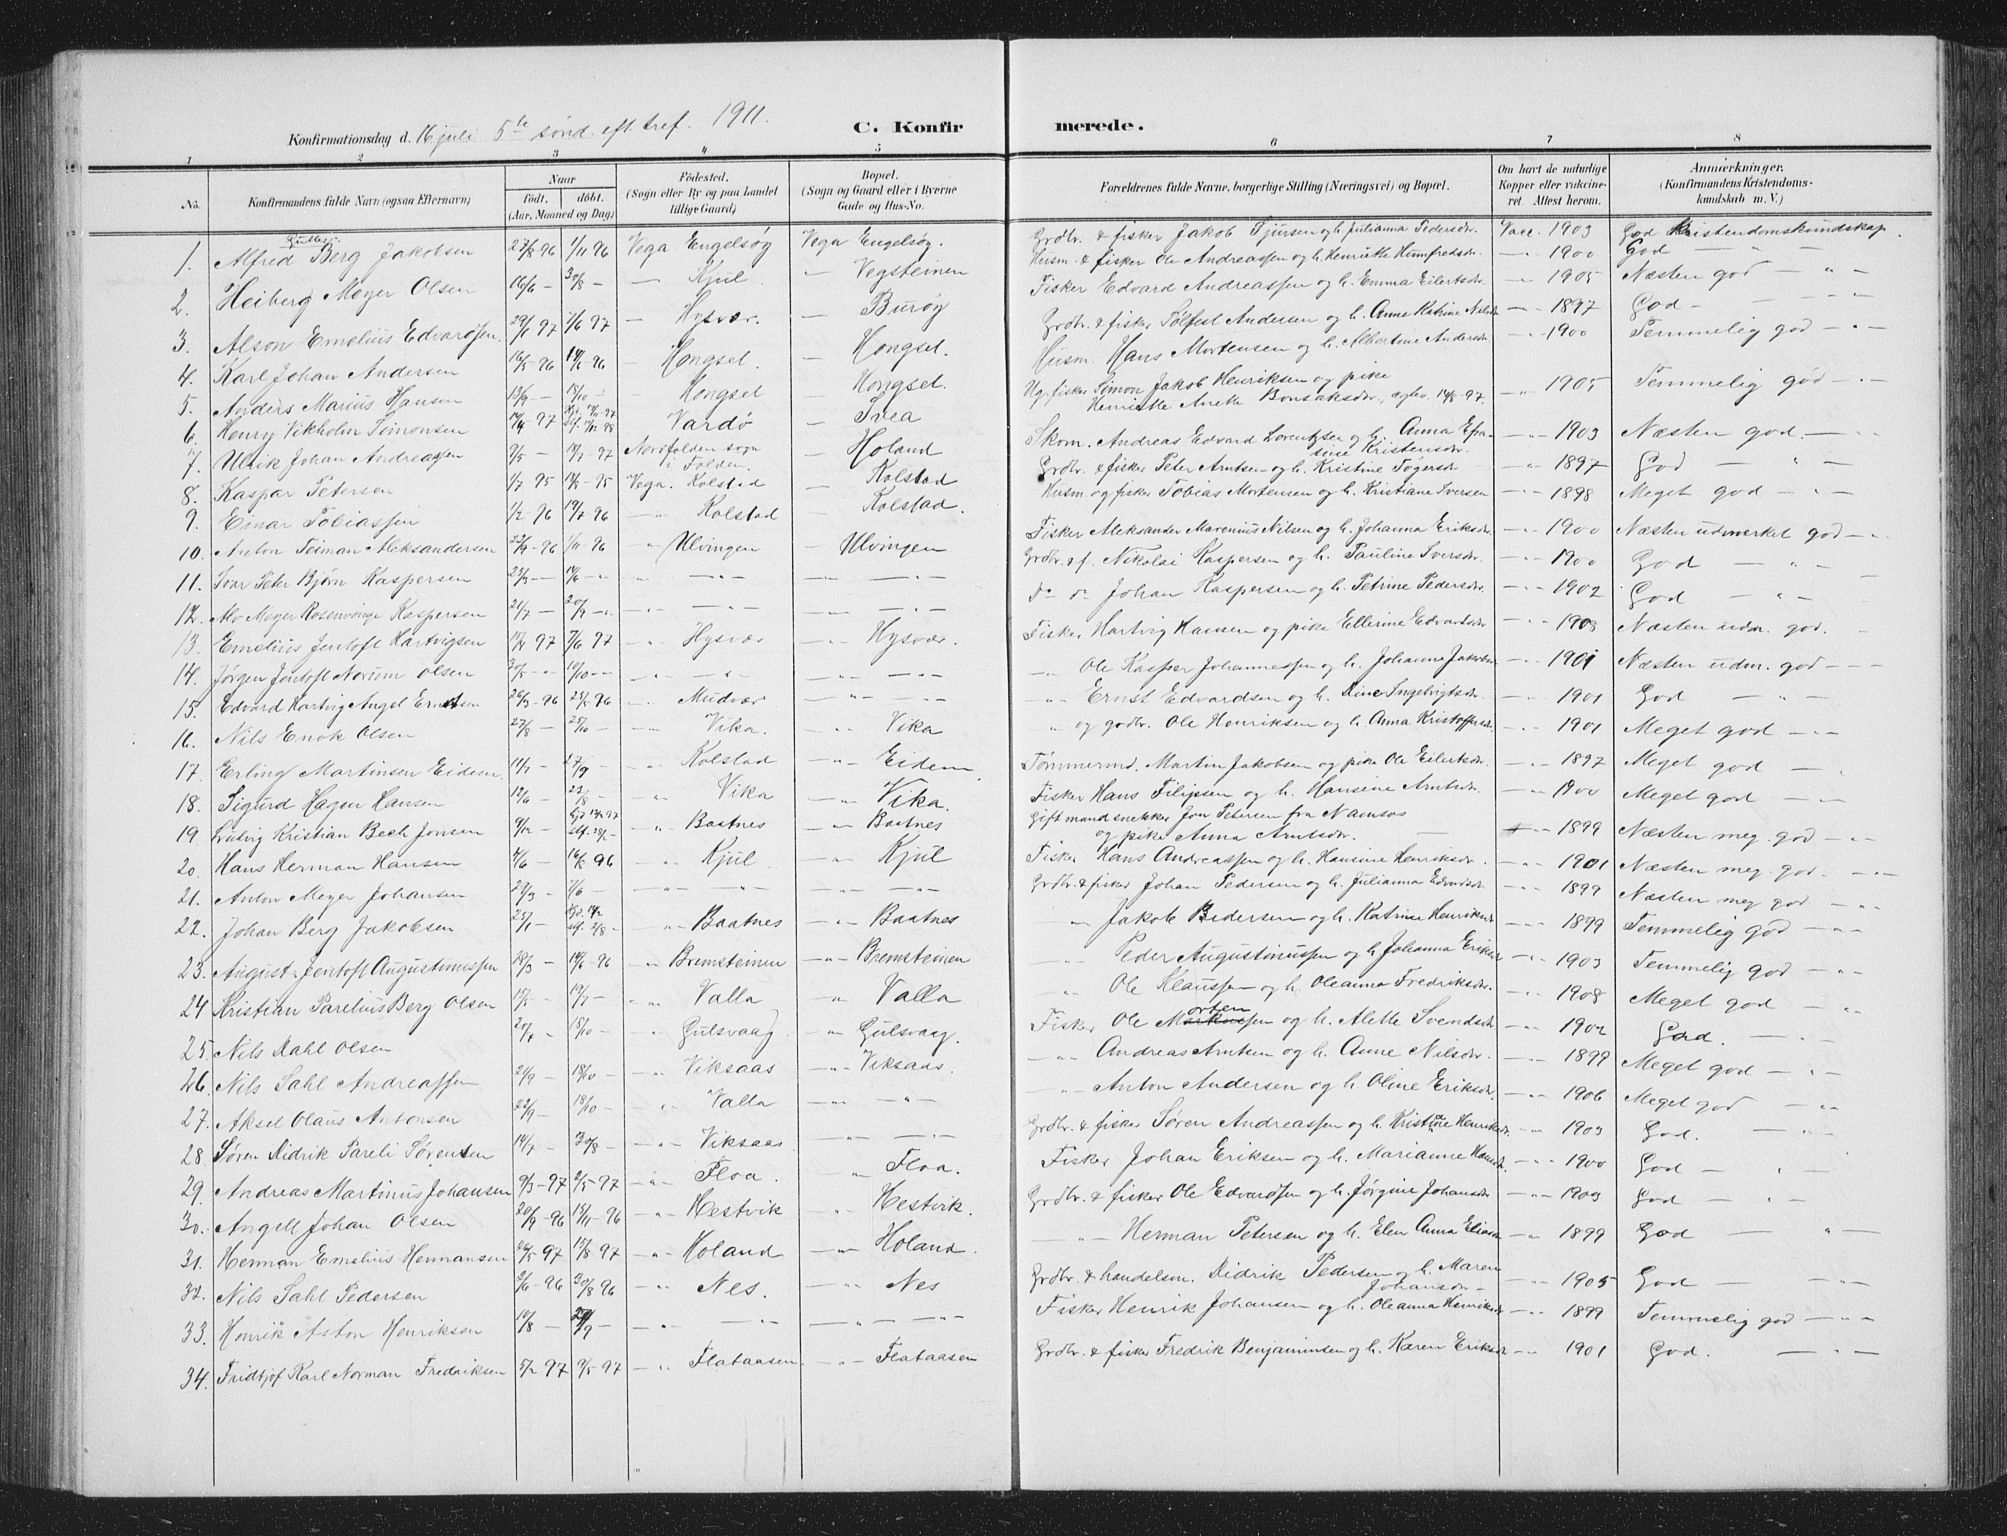 Konfirmationsdag d. 16 juli 5te sönd. eft. tref. 1911. C. Konfirmerede.
1 2 3 4 5 6 7 8
No. Konfirmandens fulde Navn (ogsaa Efternavn) Naar födt. döbt. (Aar, Maaned og Dag) Födested. (Sogn eller By og paa Landet tillige Gaard) Bopæl. (Sogn og Gaard eller i Byerne Gade og Hus-No. Forældrenes fulde Navne, borgerlige Stilling (Næringsvei) og Bopæl. Om havt de naturlige Kopper eller vakcineret. Attest herom. Anmærkninger. (Konfirmandens Kristendomskundskab m. V.)
Gutter:
1. Alfred Berg Jakobsen 27/8 96 1/11 96 Vega Engelsøy Vega Engelsøy. Grdbr. & fisker Jakob Sjursen og h. Julianna Pedersdr. Vacc. 1903 God Kristendomskundskap.
2. Heiberg Meyer Olsen 16/6 — 30/8 — — Kjul — Vegsteinen Husm. & fisker Ole Andreassen og h. Henriette Humfredsdr. — 1900 God — " —
3. Alson Emelius Edvardsen. 29/1 97 7/6 97 — Hysvær. — Burøy Fisker Edvard Andreassen og h. Emma Eilertsdr. — 1905 Næsten god — " —
4. Karl Johan Andersen 16/5 96 96 — Hongsel. — Hongsel. Grdbr. & fisker Tølfest Andersen og h. Anne Katrine Nilsdr — 1897 God — —
5. Anders Marius Hansen 13/9 — 18/10 — — Hongsel — Hongsel. Husm. Hans Mortensen og h. Albertine Andersdr — 1900 Temmelig god — " —
6. Henry Vikholm Simonsen 97 Vardø — Svea Ug. fisker Simon Jakob Henriksen og pike Henriette Anette Bonsaksdr. 1905 Temmelig god — " —
7. Ulrik Johan Andreassen 9/5 — 97 Nordfolden sogn i Folden. — Holand Skom. Andreas Edvard Lorentzen og h. Anna Efrasine Kristensdr. — 1903 Næsten god. — " —
8. Kaspar Petersen 1/7 95 95 Vega. Kolstad — Kolstad Grdbr. & fisker Peter Arntsen og h. Kristine Togersdr — 1897 God — " —
9. Einar Tobiassen 1/2 96 19/7 96 — Kolstad — Kolstad. Husm og fisker Tobias Mortensen og h. Kristiane Iversen — 1898 Meget god — " —
10. Anton Teiman Aleksandersen 22/9 96 1/11 96 " Ulvingen — Ulvingen Fisker Aleksander Marenius Nilsen og h. Johanna Eriksdr. — 1900 Næsten udmerket god — " —
11. Ivar Peter Bjørn Kaspersen 23/3 — — " — " — " — " — Grdbr. & f. Nikolai Kaspersen og h. Pauline Iversdr. — 1900 God — " —
12. Alv Meyer Rosenvinge Kaspersen 21/7 — 20/9 — " — " — " — " — do do Johan Kaspersen og h. Petrine Pedersdr. — 1902 God — " —
13. Emelius Jentoft Hartvigsen 97 7/6 97 " Hysvær " Hysvær. Fisker Hartvig Hansen og pike Ellerine Edvardsdr — 1908 Næsten udm. god. —
14. Jørgen Jentoft Norum Olsen 20/5 — 10/10 — — " — " — — " — Ole Kasper Johannessen og h. Johanne Jakobsdr — 1901 Næsten udm. god —
15. Edvard Hartvig Angel Ernstsen 26/3 96 96 " Mudvær — " — " Ernst Edvardsen og h. Dine Ingebrigtsdr. — 1901 God — " —
16. Nils Enok Olsen 27/8 — 25/10 — " Vika. " Vika " og grdbr. Ole Henriksen og h. Anna Kristoffersdr — 1901 Meget god — " —
17. Erling Martinsen Eidem. 11/7 — 27/9 — " Kolstad — " Eidem Tømmermd. Martin Jakobsen og pike Ole Eilertsdr. — 1897 Meget god —
18. Sigurd Hagen Hansen 12/6 — 23/8 — " Vika — " Vika. Fisker Hans Filipsen og h. Hansine Arntsdr. — 1900 Meget god — " —
19 Ludvig Kristian Bech Jonsen 9/12 — " Baatnes — " Baatnes Gift mand snekker Jon Petersen fra Namsos og pike Anna Arntsdr. — 1899 Næsten meg. god — " —
20. Hans Herman Hansen 4/6 — 96 " Kjul — " Kjul Fisker Hans Andreassen og h. Hansine Henriksdr. — 1901 Næsten meg. god. — " —
21. Anton Meyer Johansen 29/3 — 7/6 — — " — — " — Grdbr. & fisker Johan Pedersen og h. Julianna Edvardsdr — 1899 Næsten meg god — " —
22. Johan Berg Jakobsen 23/1 — " Baatnes " Baatnes " Jakob Pedersen og h. Katrine Henriksdr — 1899 Temmelig god — " —
23. August Jentoft Augustinussen 19/3 — 96 " Bremsteinen — " Bremsteinen — " Peder Augustinussen og h. Johanna Eriksdr — 1903 Temmelig god — " —
24 Kristian Parelius Berg Olsen 15/5 — 19/7 — " Valla " Valla " Ole Klaussen og h. Oleanna Fredriksdr. — 1908 Meget god — "
25. Nils Dahl Olsen 27/7 — 18/10 — " Gulsvaag " Gulsvaag. Fisker Ole Mortensen og h. Alette Svendsdr — 1902 God. — " —
26. Nils Dahl Andreassen 21/9 — 18/10 — " Viksaas — " Viksaas. — " Andreas Arntsen og h. Anne Nilsdr. — 1899 Meget god — " —
27. Aksel Olaus Antonsen 22/9 — 18/10 — " Valla — " — " Anton Andersen og h. Oline Eriksdr. — 1906 Meget god — "
28. Søren Didrik Pareli Sørensen 14/7 — 30/8 — " Viksaas — " — Grdbr. & fisker Søren Andreassen og h. Kristiane Henriksdr. — 1903 God. — " —
29. Andreas Martinus Johansen 9/3 — 97 2/5 — 97 " Floa. " Floa. Fisker Johan Eriksen og h. Marianne Hansdr — 1900 God — " —
30. Angell Johan Olsen 20/9 — 96 15/11 — 96 " Hestvik " Hestvik. Grdbr. & fisker Ole Edvardsen og h. Jørgine Johansdr — 1903 God — "
31. Herman Emelius Hermansen 97 15/8 97 " Holand — " Holand. — " Herman Petersen og h. Elen Anna Eliasdr — 1899 God — " —
32. Nils Dahl Pedersen 2/6 — 96 30/8 96 " Nes. — " Nes Grdbr. & handelsm. Didrik Pedersen og h. Maren Johansdr — — 1905 God — " —
33. Henrik Aston Henriksen 10/8 — — " — " — — " — " Fisker Henrik Johansen og h. Oleanna Henriksdr — 1899 Temmelig god — " —
34. Fridtjof Karl Norman Fredriksen 5/2 97 9/5 — 97 " Flataasen — " Flataasen Grdbr. & fisker Fredrik Benjaminsen og h. Karen Eriksdr — 1901 God. — " —